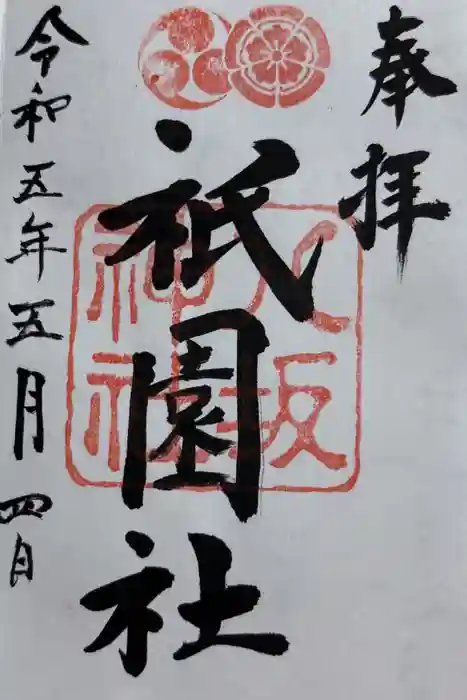 奉拝
祇園社
八坂
神社
令和五年五月四日